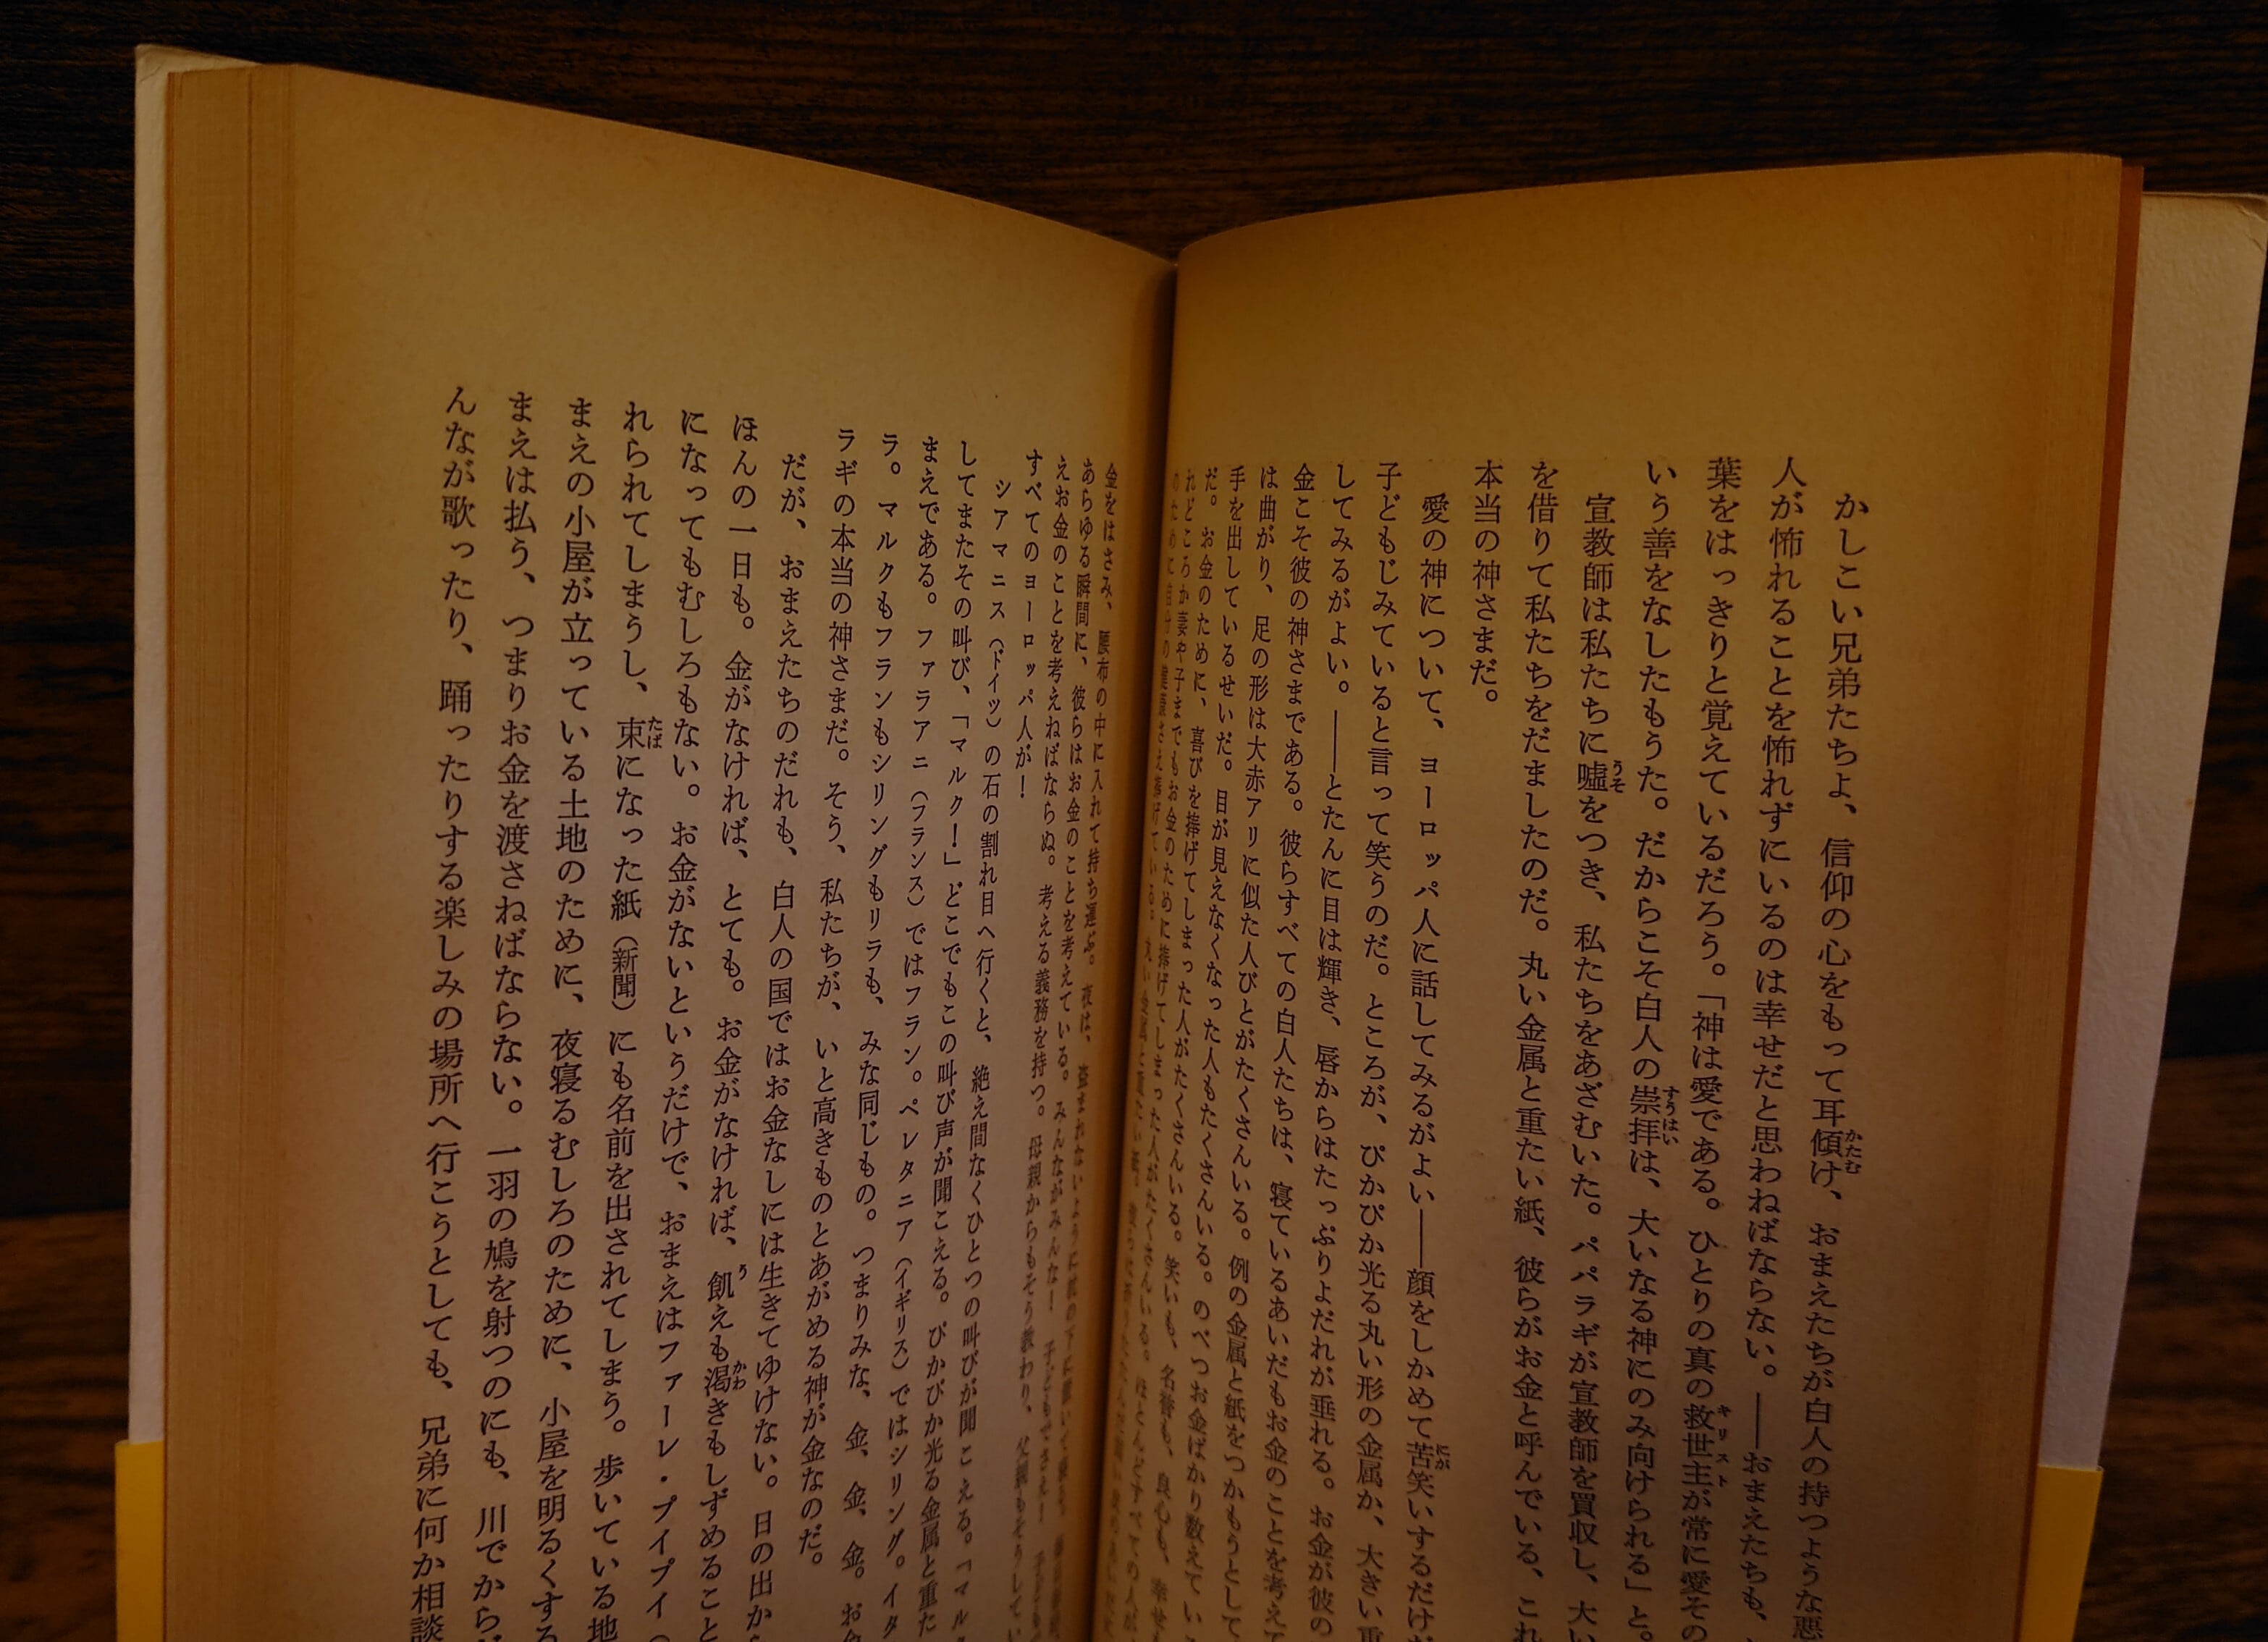 かしこい兄弟たちよ、信仰の心をもって耳傾け、おまえたちが白人の持つような悪
人が怖れることを怖れずにいるのは幸せだと思わねばならない。――おまえたちも、
葉をはっきりと覚えているだろう。「神は愛である。ひとりの真の救世主が常に愛その
いう善をなしたもうた。だからこそ白人の崇拝は、大いなる神にのみ向けられる」と。
宣教師は私たちに嘘をつき、私たちをあざむいた。パパラギが宣教師を買収し、大い
を借りて私たちをだましたのだ。丸い金属と重たい紙、彼らがお金と呼んでいる、これ
本当の神さまだ。
愛の神について、ヨーロッパ人に話してみるがよい――顔をしかめて苦笑いするだけだ
子どもじみていると言って笑うのだ。ところが、ぴかぴか光る丸い形の金属か、大きい重
してみるがよい。――とたんに目は輝き、唇からはたっぷりよだれが垂れる。お金が彼の
金こそ彼の神さまである。彼らすべての白人たちは、寝ているあいだもお金のことを考えて
は曲がり、足の形は大赤アリに似た人びとがたくさんいる。例の金属と紙をつかもうとして
手を出しているせいだ。目が見えなくなった人もたくさんいる。のべつお金ばかり数えてい
だ。お金のために、喜びを捧げてしまった人がたくさんいる。笑いも、名誉も、良心も、幸せ
れどころか妻や子までもお金のために捧げてしまった人がたくさんいる。
金をはさみ、腰布の中に入れて持ち運ぶ。夜は、盗まれないように
あらゆる瞬間に、彼らはお金のことを考えている。みんながみんな！ 子どもでさえ！
えお金のことを考えねばならぬ。考える義務を持つ。母親からもそう教わり、父親もそうして
すべてのヨーロッパ人が！
シアマニス（ドイツ）の石の割れ目へ行くと、絶え間なくひとつの叫びが聞こえる。「マル
してまたその叫び、「マルク！」どこでもこの叫び声が聞こえる。ぴかぴか光る金属と重た
まえである。ファラアニ（フランス）ではフラン。ペレタニア（イギリス）ではシリング。イタ
ラ。マルクもフランもシリングもリラも、みな同じもの。つまりみな、金、金、金。お金
ラギの本当の神さまだ。そう、私たちが、いと高きものとあがめる神が金なのだ。
だが、おまえたちのだれも、白人の国ではお金なしには生きてゆけない。日の出から
ほんの一日も。金がなければ、とても。お金がなければ、飢えも渇きもしずめること
になってもむしろもない。お金がないというだけで、おまえはファーレ・プイプイ（
れられてしまうし、束になった紙（新聞）にも名前を出されてしまう。歩いている地
まえの小屋が立っている土地のために、夜寝るむしろのために、小屋を明るくする
まえは払う、つまりお金を渡さねばならない。一羽の鳩を射つのにも、川でから
んなが歌ったり、踊ったりする楽しみの場所へ行こうとしても、兄弟に何か相談